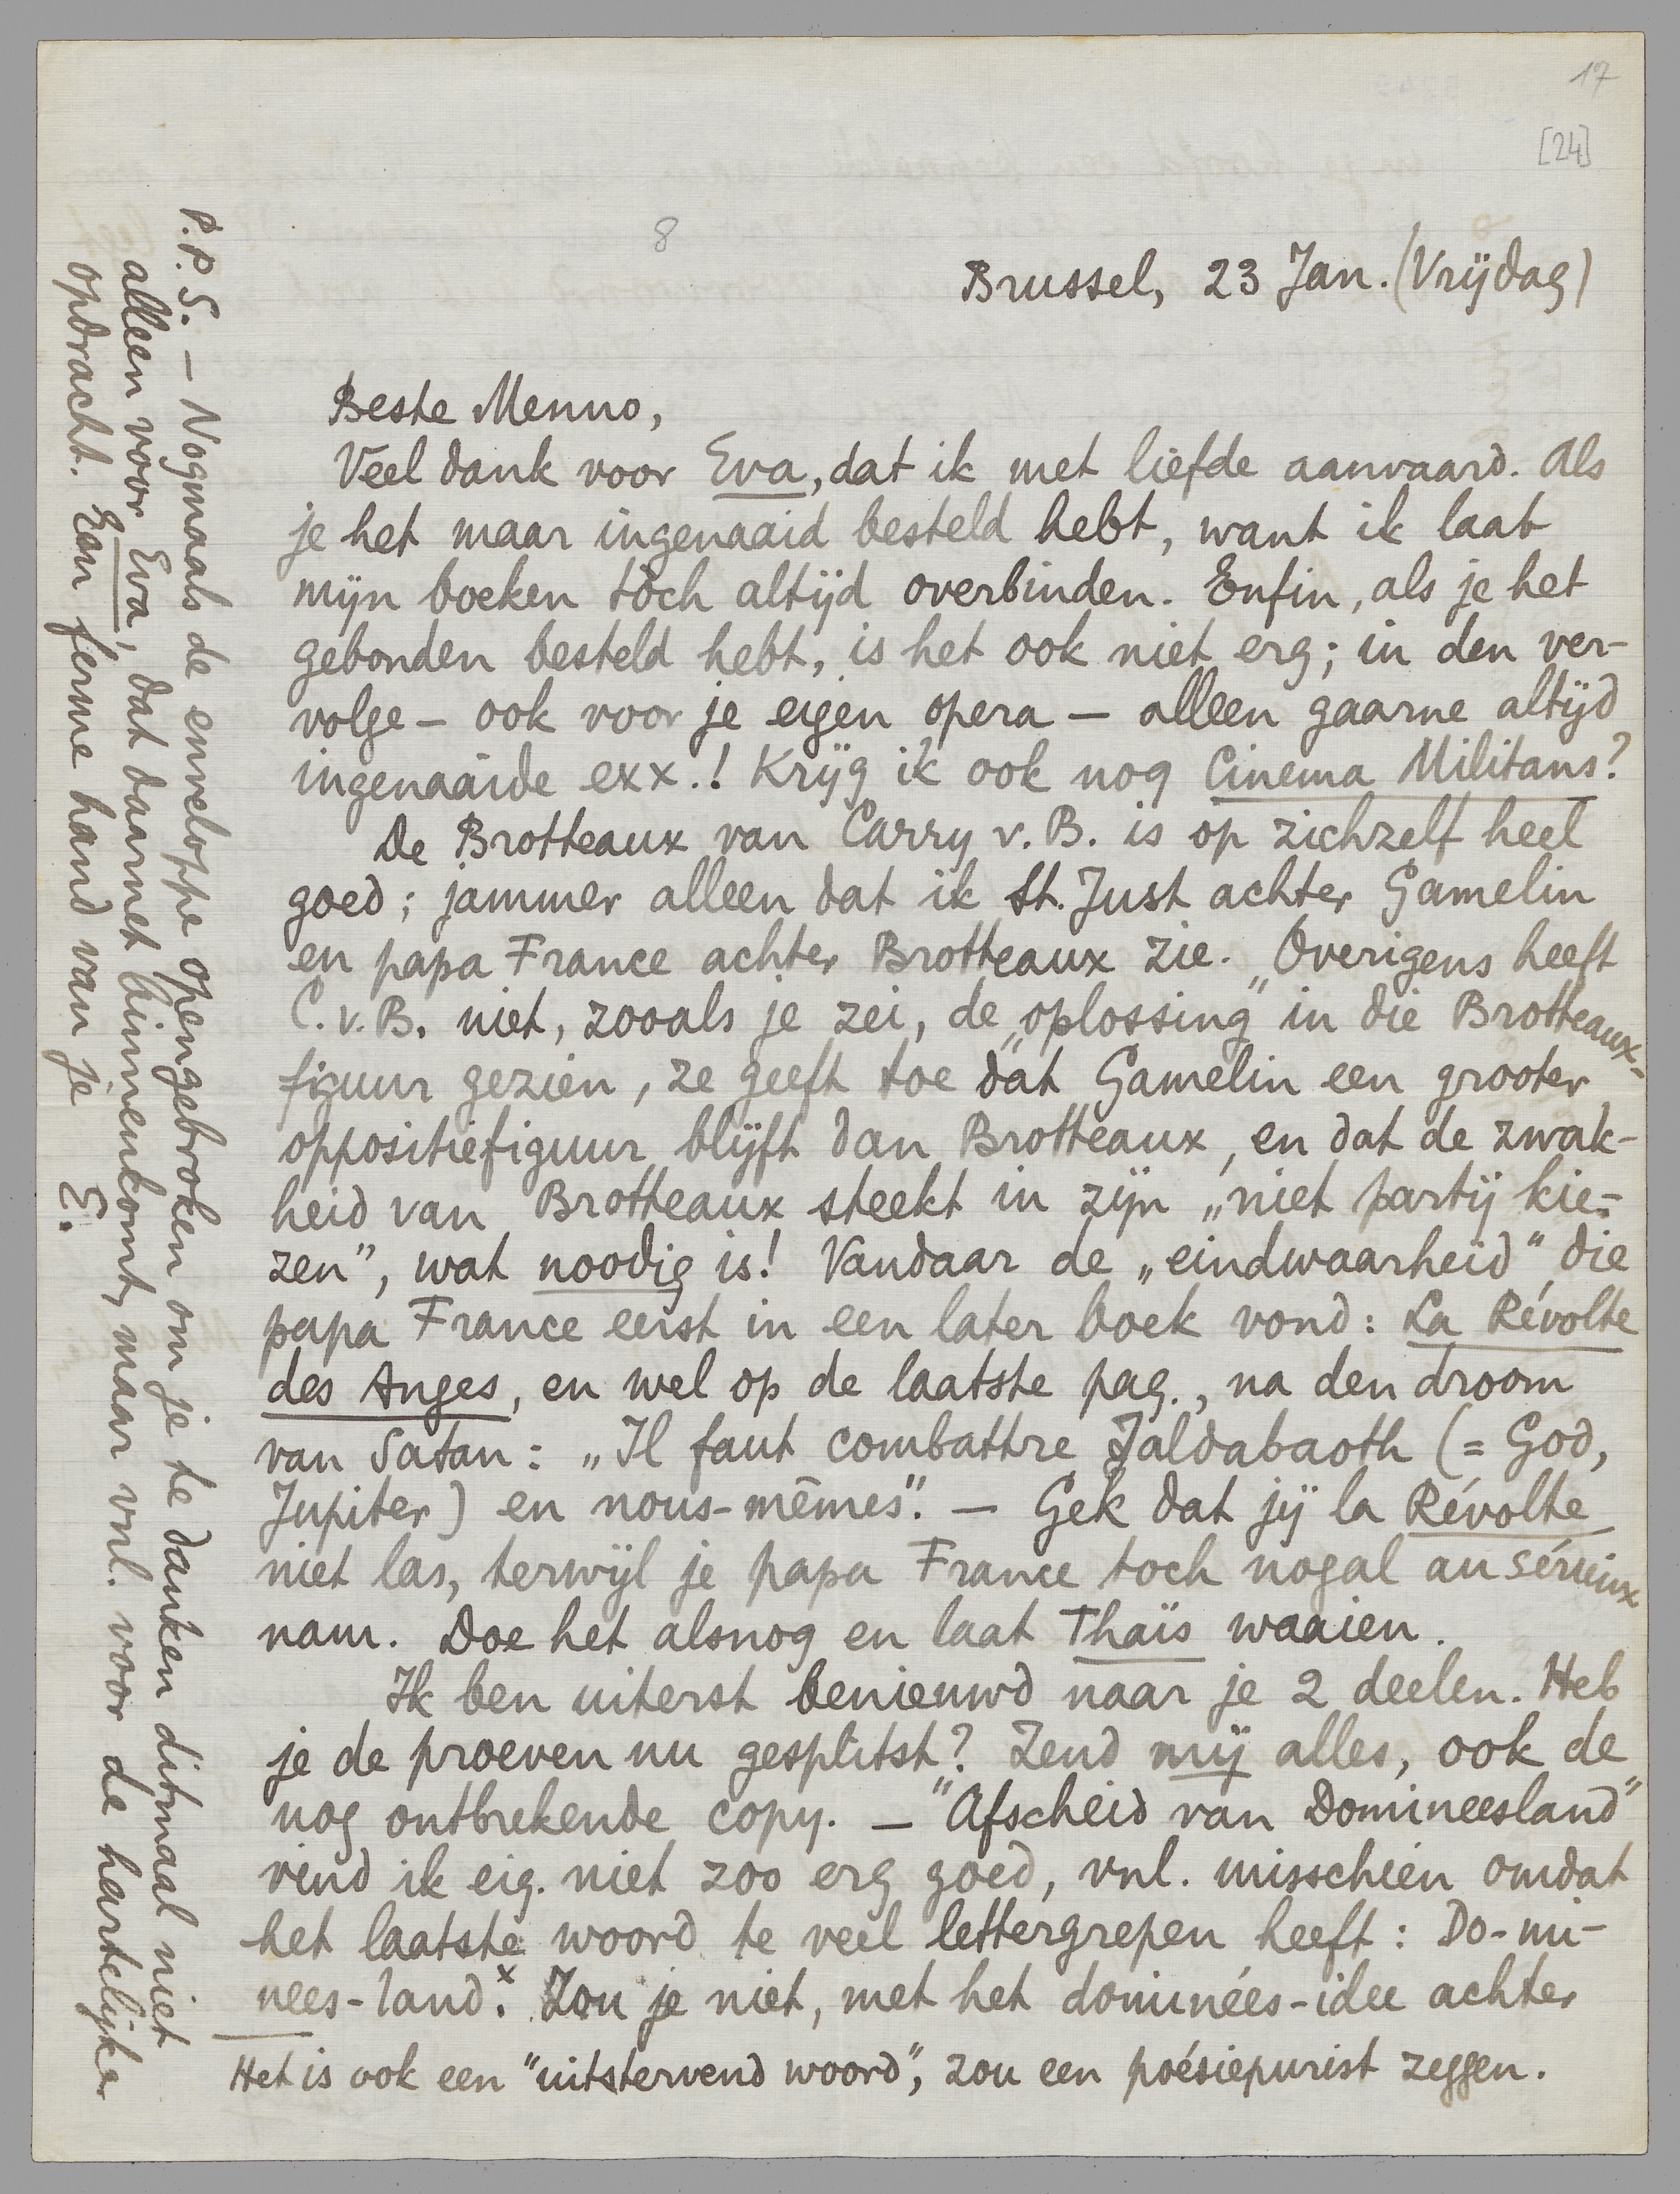 17
[24]
8
Brussel, 23 Jan. (Vrijdag)
Beste Menno,
Veel dank voor Eva, dat ik met liefde aanvaard. Als
je het maar ingenaaid besteld hebt, want ik laat
mijn boeken tòch altijd overbinden. Enfin, als je het
gebonden besteld hebt, is het ook niet erg; in den ver-
volge – ook voor je eigen opera – alleen gaarne altijd
ingenaaide exx.! Krijg ik ook nog Cinema Militans?
De Brotteaux van Carry v. B. is op zichzelf heel
goed; jammer alleen dat ik St. Just achter Gamelin
en papa France achter Brotteaux zie. Overigens heeft
C. v. B. niet, zooals je zei, de „oplossing” in die Brotteaux-
figuur gezien, ze geeft toe dat Gamelin een grooter
oppositiefiguur blijft dan Brotteaux, en dat de zwak-
heid van Brotteaux steekt in zijn „niet partij kie-
zen”, wat noodig is! Vandaar de „eindwaarheid” die
papa France eerst in een later boek vond: La Révolte
des Anges, en wel op de laatste pag., na den droom
van Satan: „Il faut combattre Jaldabaoth (= God,
Jupiter) en nous-mêmes”. – Gek dat jij la Révolte
niet las, terwijl je papa France toch nogal au sérieux
nam. Doe het alsnog en laat Thaïs waaien.
Ik ben uiterst benieuwd naar je 2 deelen. Heb
je de proeven nu gesplitst? Zend mij alles, ook de
nog ontbrekende copy. – "Afscheid van Domineesland"
vind ik eig. niet zoo erg goed, vnl. misschien omdat
het laatste woord te veel lettergrepen heeft: Do-mi-
nees-land.x Zou je niet, met het dominées-idee achter
Het is ook een "uitstervend woord", zou een poésiepurist zeggen.
P.P.S. – Nogmaals de enveloppe opengebroken om je te danken ditmaal niet
alleen voor Eva, dat daarnet binnenkomt, maar vnl. voor de hartelijke
opdracht. Een ferme hand van je E.